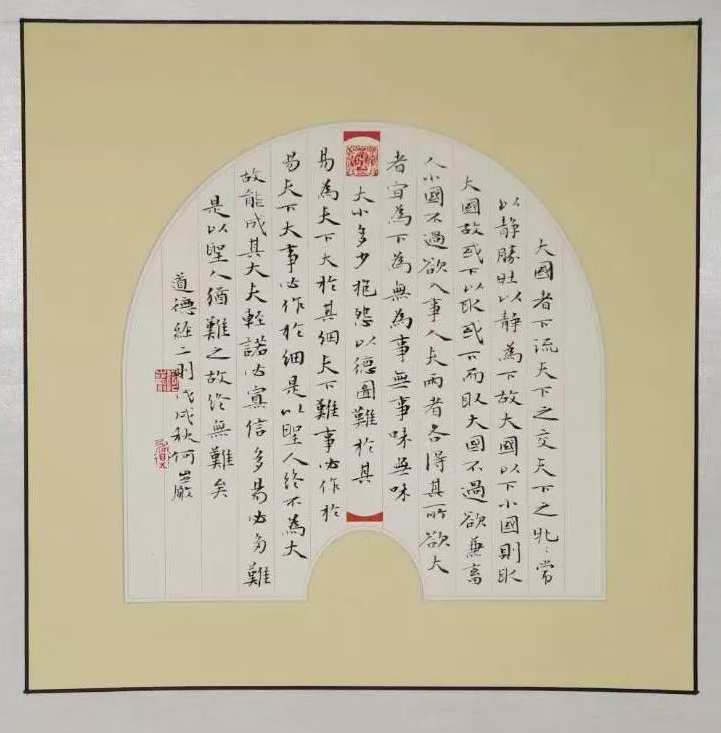 大國者下流天下之交天下之牝〻常
以靜勝牡以靜為下故大國以下小國則取
大國故或下以取或下而取大國不過欲兼畜
人小國不過欲入事人夫兩者各得其所欲大
者宜為下為無為事無事味無味
大小多少抱怨以德圖難於其
易為天下大於其細天下難事必作於
易天下大事必作於細是以聖人終不為大
故能成其大夫輕諾必寡信多易必多難
是以聖人猶難之故終無難矣
道德經二則戊戌秋何巖